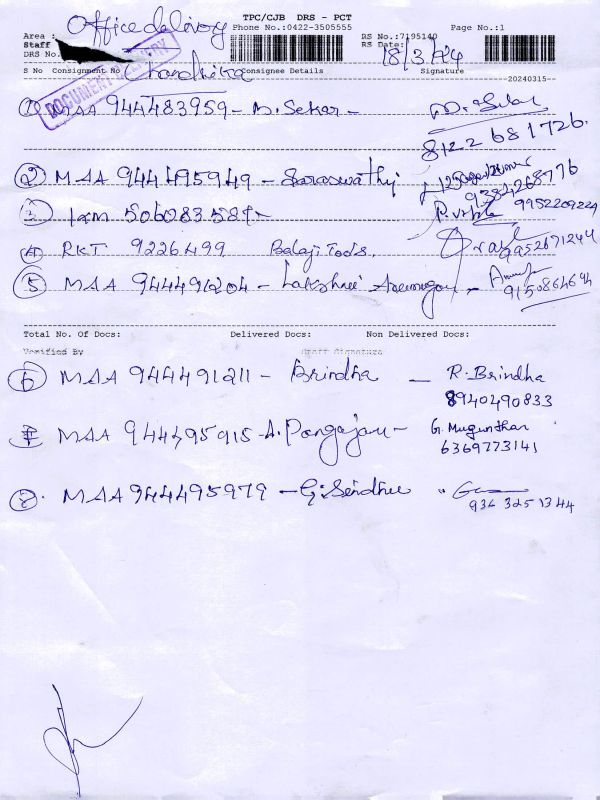 Office delivery
TPC/CJB DRS - PCT
Area :
Phone No.:0422-3505555
RS No.:7195140
Page No.:1
Staff
RS Date:
18/3/24
DRS No.
DOCUMENT
Chandrika
S No Consignment No
Consignee Details
Signature
20240315
① MAA 944483959 - M. Sekar -
8122 681726.
② MAA 944495949 - Saraswathy
9384268776
③ IXM 506083589 -
9952209224
④ RKT 9226499 Balaji Tools.
9952671244
⑤ MAA 944491204 - Lakshmi Arumugam -
9150864694
Total No. Of Docs: Delivered Docs: Non Delivered Docs:
Verified By Staff Signature
⑥ MAA 944491211 - Brindha - R. Brindha
8940490833
⑦ MAA 944495915 - A. Pangajam - G. Mugunthar
6369773141
⑧ MAA 944495979 - G. Sendhu
936 3251344